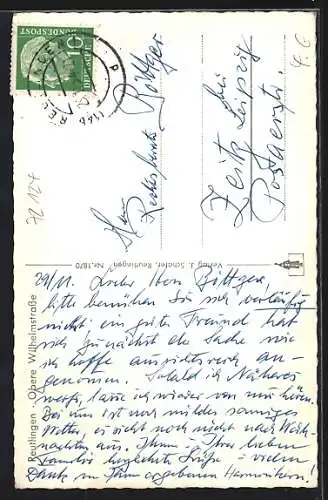 DEUTSCHE BUNDESPOST
10
REUTLINGEN
72 124
4.6
Herrn
Böttger
bei Leipzig
Zeitz
Postagentur
Verlag J. Schäfer, Reutlingen Nr. 1870
Reutlingen - Obere Wilhelmstraße
29/11. Lieber Herr Böttger!
bitte bemühen Sie sich vorläufig
nicht, ein guter Freund hat
sich zunächst die Sache wie
ich hoffe aussichtsreich an-
genommen. Sobald ich Näheres
weiß, lasse ich wieder von mir hören.
Bei uns ist noch mildes sonniges
Wetter, es sieht noch nicht nach Weih-
nachten aus. Ihnen u. Ihrer lieben
Familie herzliche Grüße u. vielen
Dank Ihr Ihnen ergebener